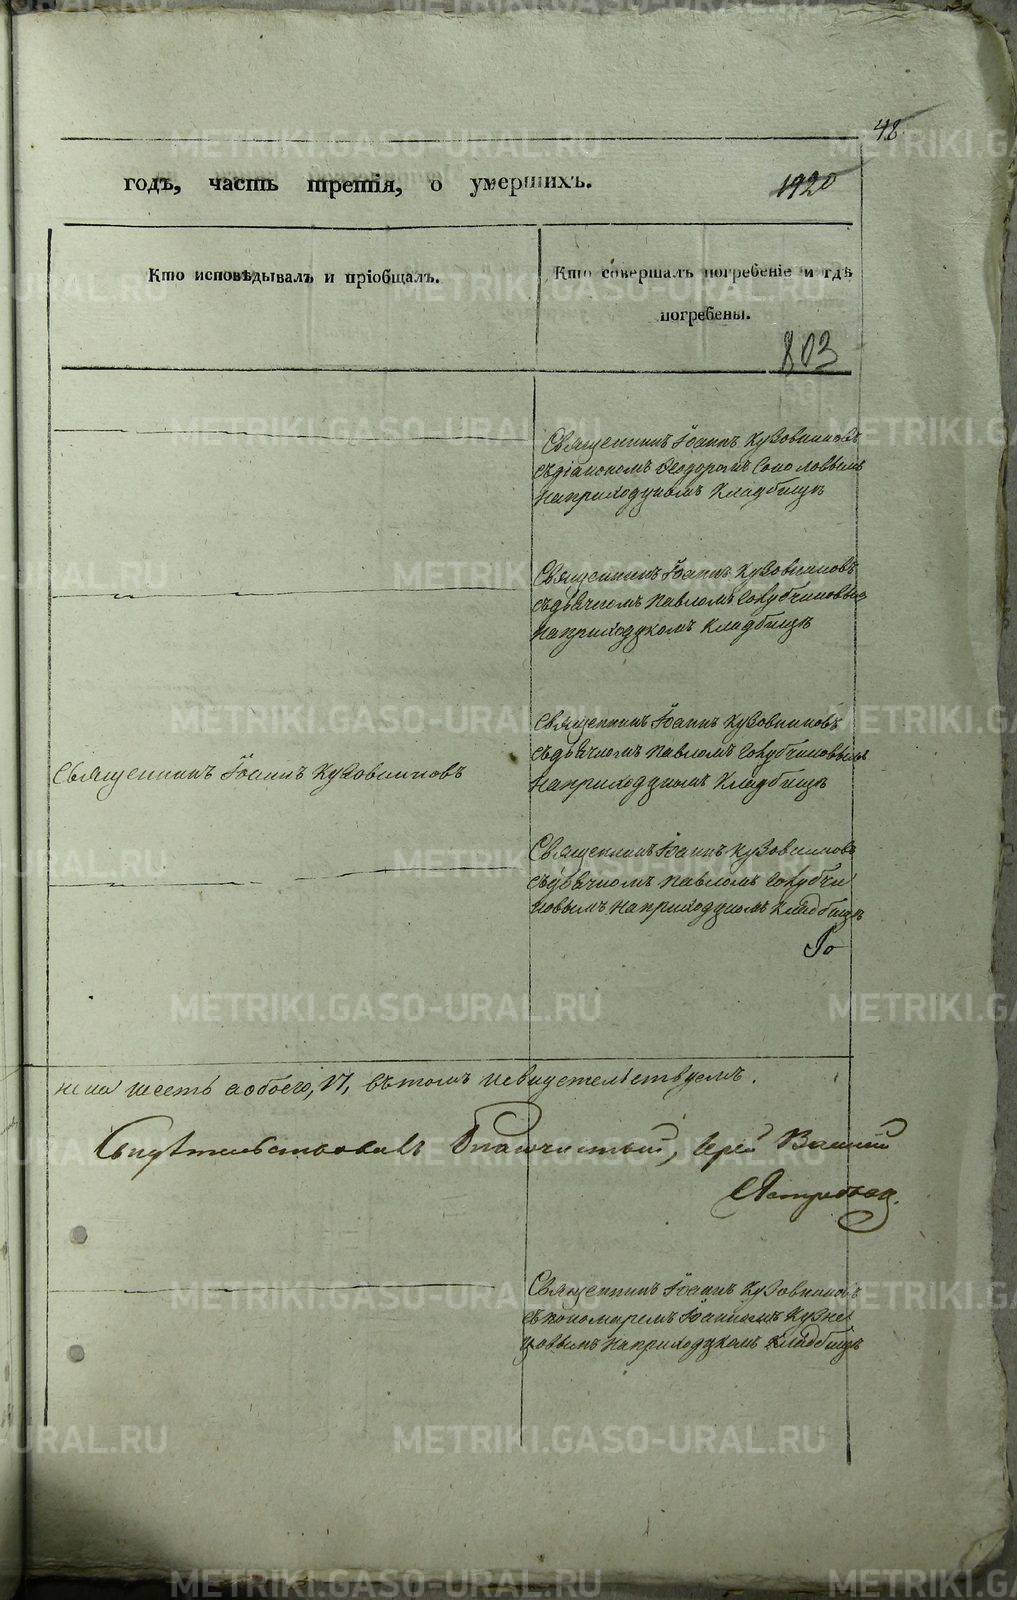 48
годъ, часть третія, о умершихъ.
1920
Кто исповѣдывалъ и пріобщалъ.
Кто совершалъ погребеніе и гдѣ
погребены.
803
Священникъ Іоаннъ Кузовниковъ
съ діакономъ Ѳеодоромъ Соколовымъ
на приходскомъ кладбищѣ
Священникъ Іоаннъ Кузовниковъ
съ дьячкомъ Павломъ Голубчиковымъ
на приходскомъ кладбищѣ
Священникъ Іоаннъ Кузовниковъ
съ дьячкомъ Павломъ Голубчиковымъ
на приходскомъ кладбищѣ
Священникъ Іоаннъ Кузовниковъ
Священникъ Іоаннъ Кузовниковъ
съ дьячкомъ Павломъ Голубчи
ковымъ на приходскомъ кладбищѣ
шесть а обоего, 17, въ томъ и свидетельствуемъ.
Свидѣтельствовалъ Благочинный, Іерей Василій
Священникъ Іоаннъ Кузовниковъ
съ пономаремъ Іоанномъ Кузне
цовымъ на приходскомъ кладбищѣ
METRIKI.GASO-URAL.RU